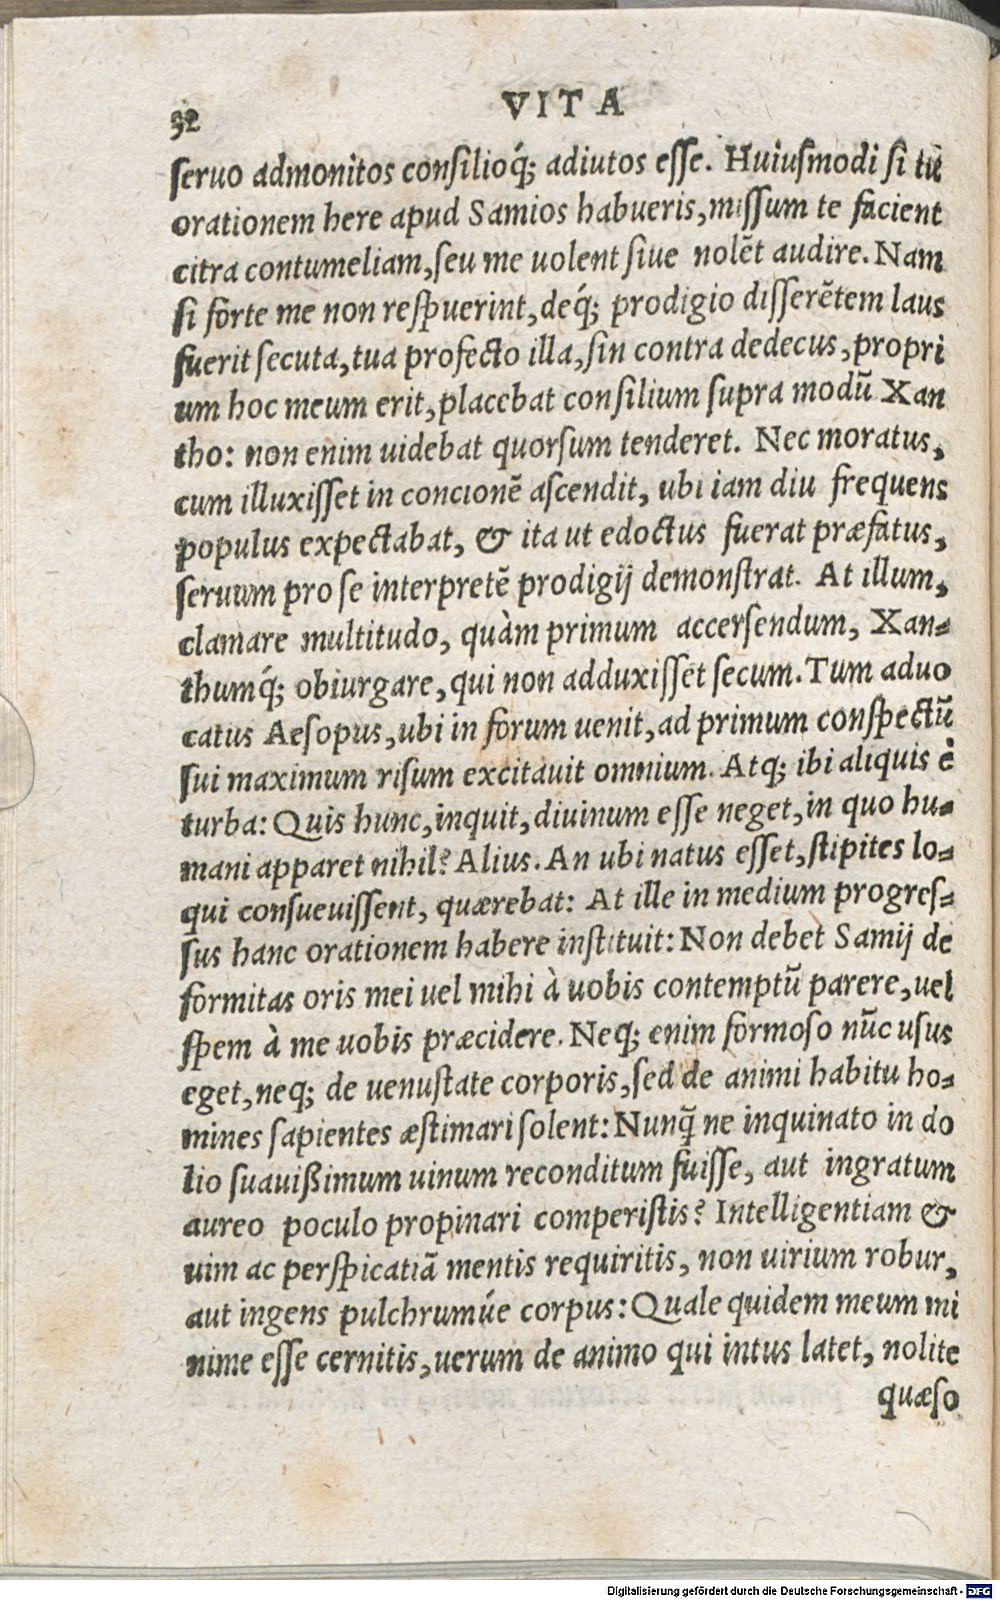 32
VITA
seruo admonitos consilioq́; adiutos esse. Huiusmodi si tu
orationem here apud Samios habueris, missum te facient
citra contumeliam, seu me uolent siue nolēt audire. Nam
si forte me non respuerint, deq́; prodigio disserētem laus
fuerit secuta, tua profecto illa, sin contra dedecus, propri
um hoc meum erit, placebat consilium supra modū Xan
tho: non enim uidebat quorsum tenderet. Nec moratus,
cum illuxisset in concionē ascendit, ubi iam diu frequens
populus expectabat, & ita ut edoctus fuerat præfatus,
seruum pro se interpretē prodigij demonstrat. At illum,
clamare multitudo, quàm primum accersendum, Xan-
thumq́; obiurgare, qui non adduxisset secum. Tum aduo
catus Aesopus, ubi in forum uenit, ad primum conspectū
sui maximum risum excitauit omnium. Atq; ibi aliquis è
turba: Quis hunc, inquit, diuinum esse neget, in quo hu-
mani apparet nihil? Alius. An ubi natus esset, stipites lo-
qui consueuissent, quærebat: At ille in medium progres-
sus hanc orationem habere instituit: Non debet Samij de
formitas oris mei uel mihi à uobis contemptū parere, uel
spem à me uobis præcidere. Neq; enim formoso nūc usus
eget, neq; de uenustate corporis, sed de animi habitu ho-
mines sapientes æstimari solent: Nunq̃ ne inquinato in do
lio suauißimum uinum reconditum fuisse, aut ingratum
aureo poculo propinari comperistis? Intelligentiam &
uim ac perspicatiā mentis requiritis, non uirium robur,
aut ingens pulchrumúe corpus: Quale quidem meum mi
nime esse cernitis, uerum de animo qui intus latet, nolite
quæso
Digitalisierung gefördert durch die Deutsche Forschungsgemeinschaft - DFG